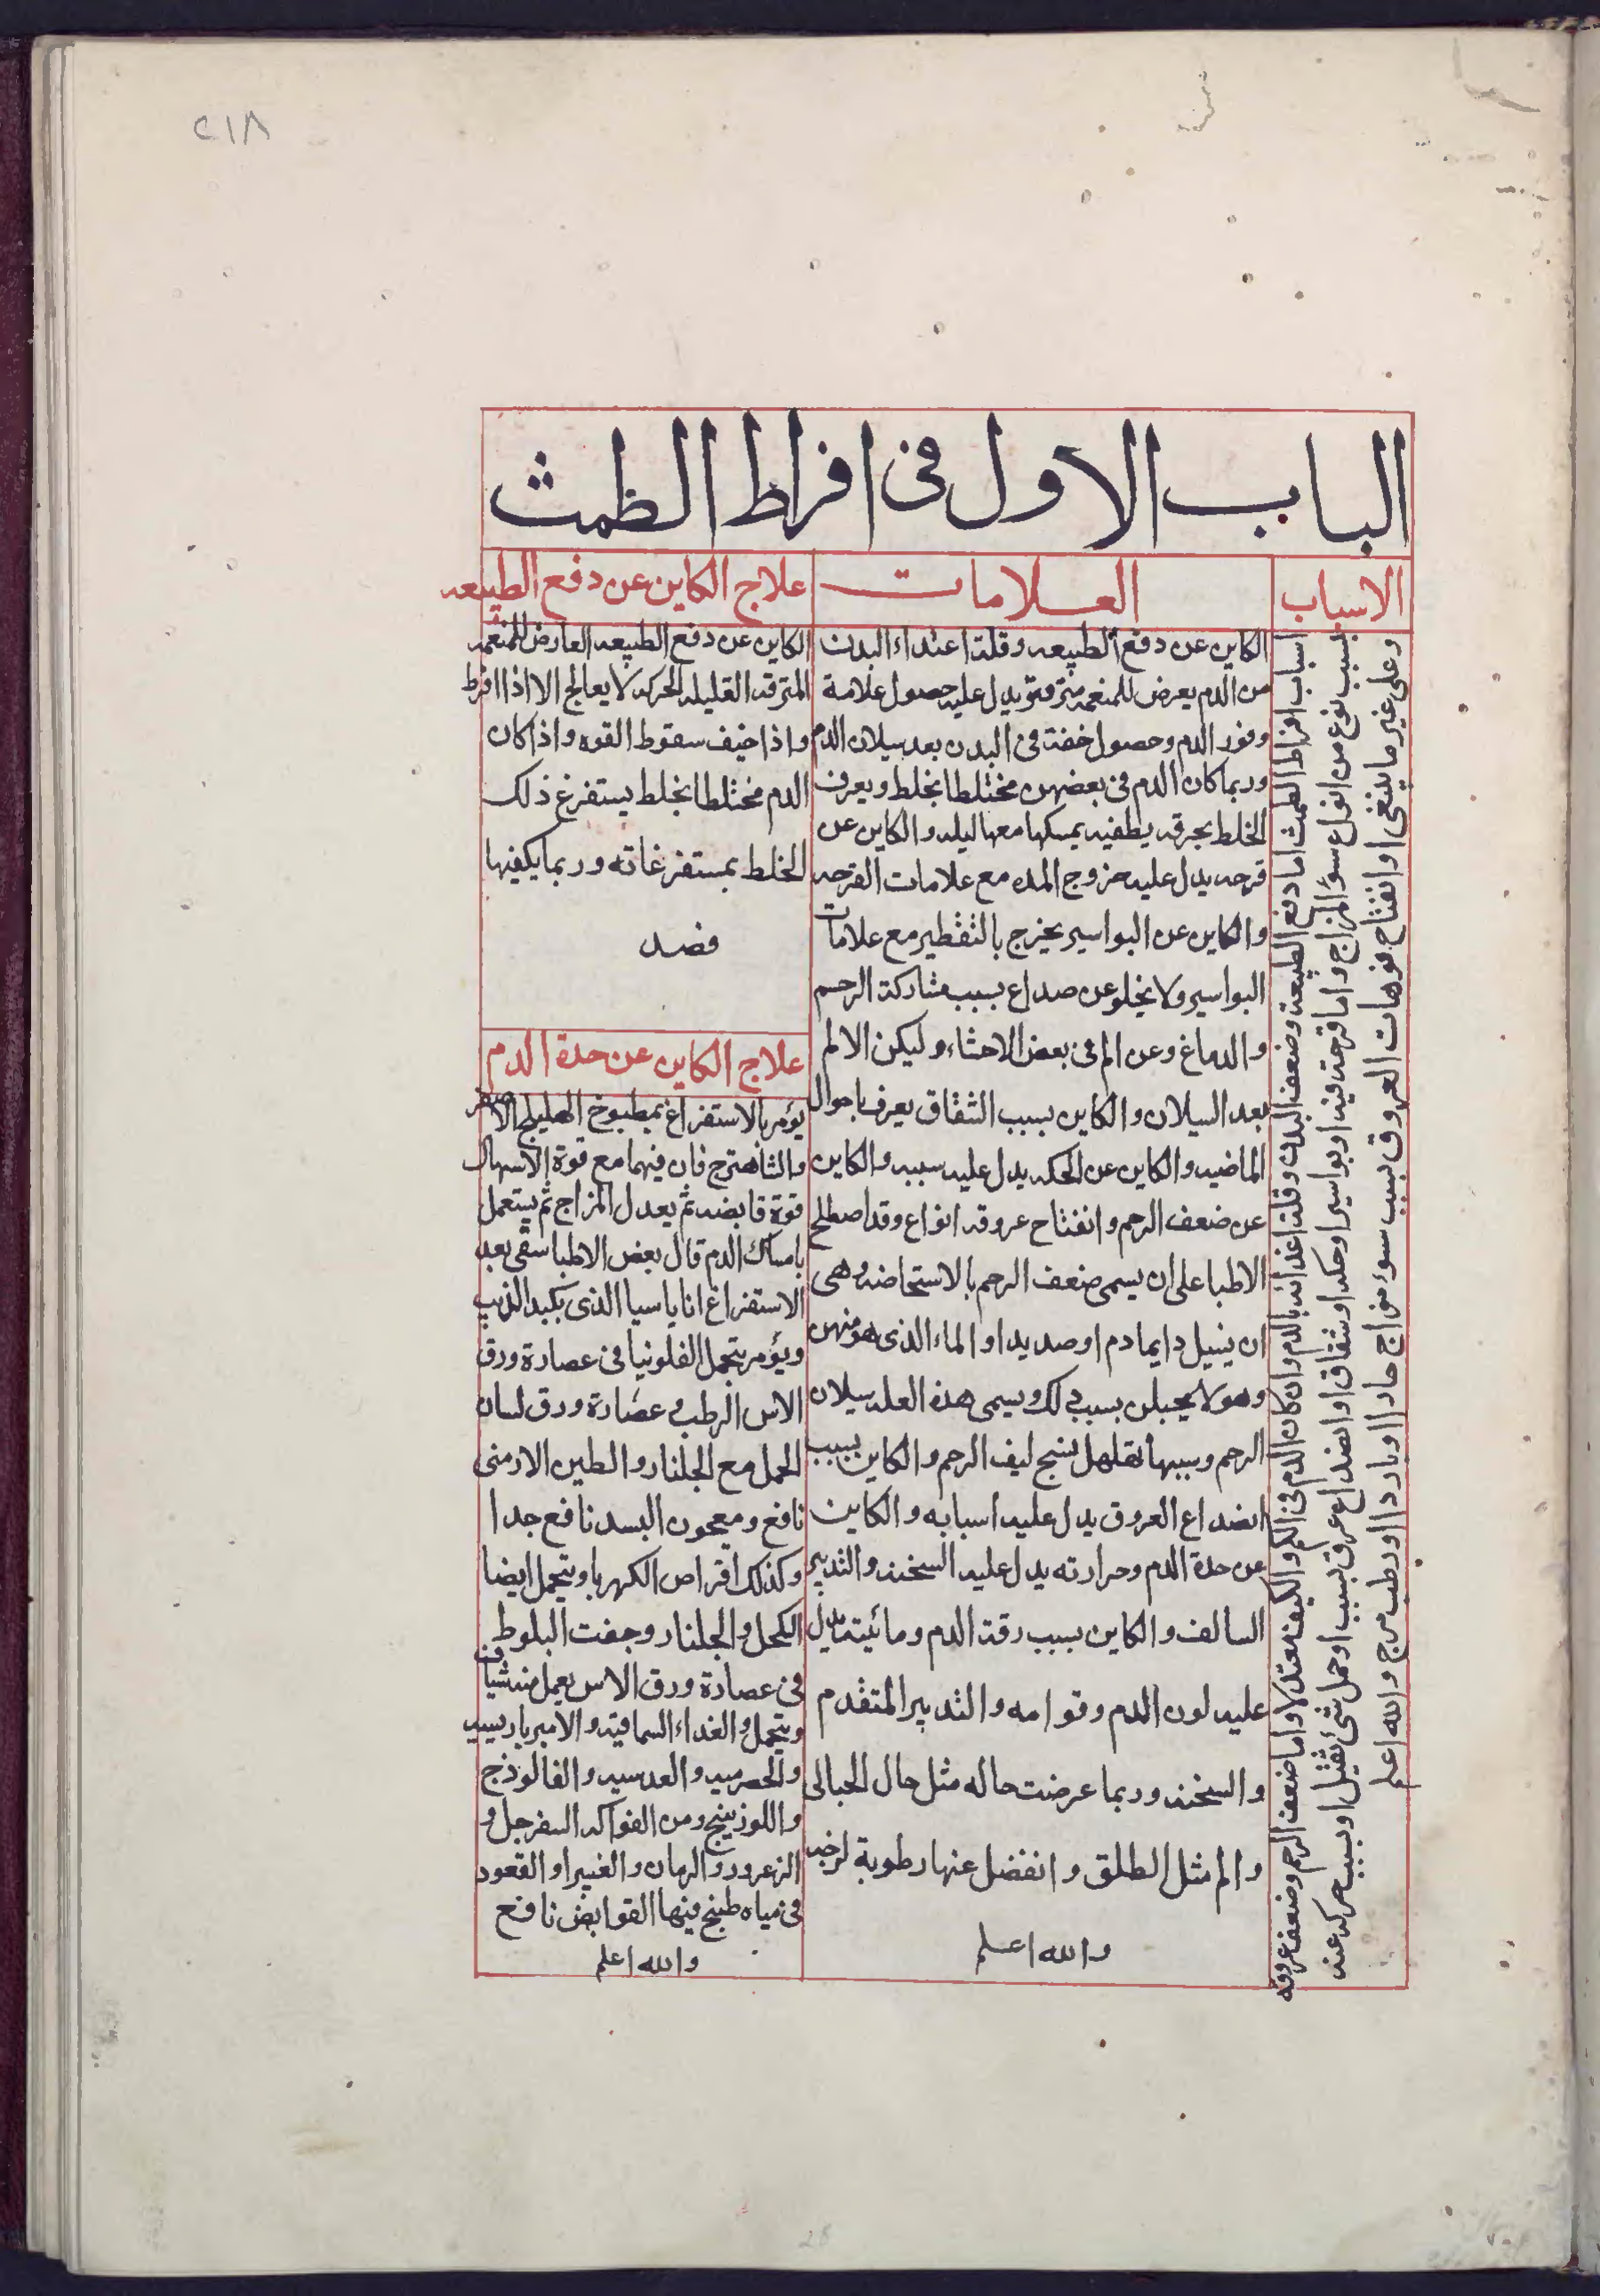 ٢١٨
الباب الاول فى افراط الطمث
الاسباب
العلامات
علاج الكاين عن دفع الطبيعه
اسباب افراط الطمث اما دفع الطبيعة وضعف البدن وقلة اغتذائه بالدم وان كان الدم فى الكم والكيف معتدلا واما ضعف الرحم وضعف عروقه
بسبب نوع من انواع سؤ المزاج واما قرحة فيه او بواسير او حكه او شقاق او انصداع عرق بسبب او حمل شئ ثقيل او بسبب حركه عنه
وعلى غير ما ينبغى او انفتاح فوهات العروق بسبب سوء مزاج حار او بارد او رطب مرخ والله اعلم
الكاين عن دفع الطبيعه وقلة اغتداء البدن
من الدم يعرض للمنعمه مترفة ويدل عليه حصول علامة
وفور الدم وحصول خفة فى البدن بعد سيلان الدم
وربما كان الدم فى بعضهن مختلطا بخلط ويعرف
الخلط بخرقه يطفيه يمسكها معها ليله والكاين عن
قرحه يدل عليه خروج المده مع علامات القرحه
والكاين عن البواسير يخرج بالتقطير مع علامات
البواسير ولا يخلو عن صداع بسبب مشاركة الرحم
والدماغ وعن الم فى بعض الاحشاء وليكن الالم
بعد السيلان والكاين بسبب الشقاق يعرف باحوال
الماضيه والكاين عن الحكه يدل عليه سببه والكاين
عن ضعف الرحم وانفتاح عروقه انواع وقد اصطلح
الاطبا على ان يسمى ضعف الرحم بالاستحاضه وهى
ان يسيل دايما دم او صديد او الماء الذى هو منهن
وهو لا يحبلن بسبب ذلك ويسمى هذه العله سيلان
الرحم وسببها تهلهل نسج ليف الرحم والكاين بسبب
انصداع العروق يدل عليه اسبابه والكاين
عن حدة الدم وحرارته يدل عليه السخنه والتدبير
السالف والكاين بسبب رقة الدم ومائيته يدل
عليه لون الدم وقوامه والتدبير المتقدم
والسخنه وربما عرضت حاله مثل حال الحبالى
والم مثل الطلق وانفضل عنها رطوبة لزجه
والله اعلم
الكاين عن دفع الطبيعه العارض للمنعمه
المترفه القليله الحركه لا يعالج الا اذا افرط
واذا خيف سقوط القوه واذا كان
الدم مختلطا بخلط يستفرغ ذلك
الخلط بمستفرغاته وربما يكفيها
فصد
علاج الكاين عن حدة الدم
يؤمر بالاستفراغ بمطبوخ الهليلج الاصفر
والشاهترج فان فيهما مع قوة الاسهال
قوة قابضه ثم يعدل المزاج ثم يستعمل
بامساك الدم قال بعض الاطبا سقى بعد
الاستفراغ اناناسيا الذى بكبد الذيب
ويؤمر بتحمل الفلونيا فى عصارة ورق
الاس الرطب وعصارة ورق لسان
الحمل مع الجلنار والطين الارمنى
نافع ومعجون البسد نافع جدا
وكذلك اقراص الكهربا ويتحمل ايضا
الكحل والجلنار وجفت البلوط
فى عصارة ورق الاس يعمل منه شيافه
ويتحمل والغداء السماقيه والاميرباريسيه
والحصرميه والعدسيه والفالوذج
واللوزينج ومن الفواكه السفرجل و
الزعرور والرمان والغبيرا والقعود
فى مياه طبخ فيها القوابض نافع
والله اعلم